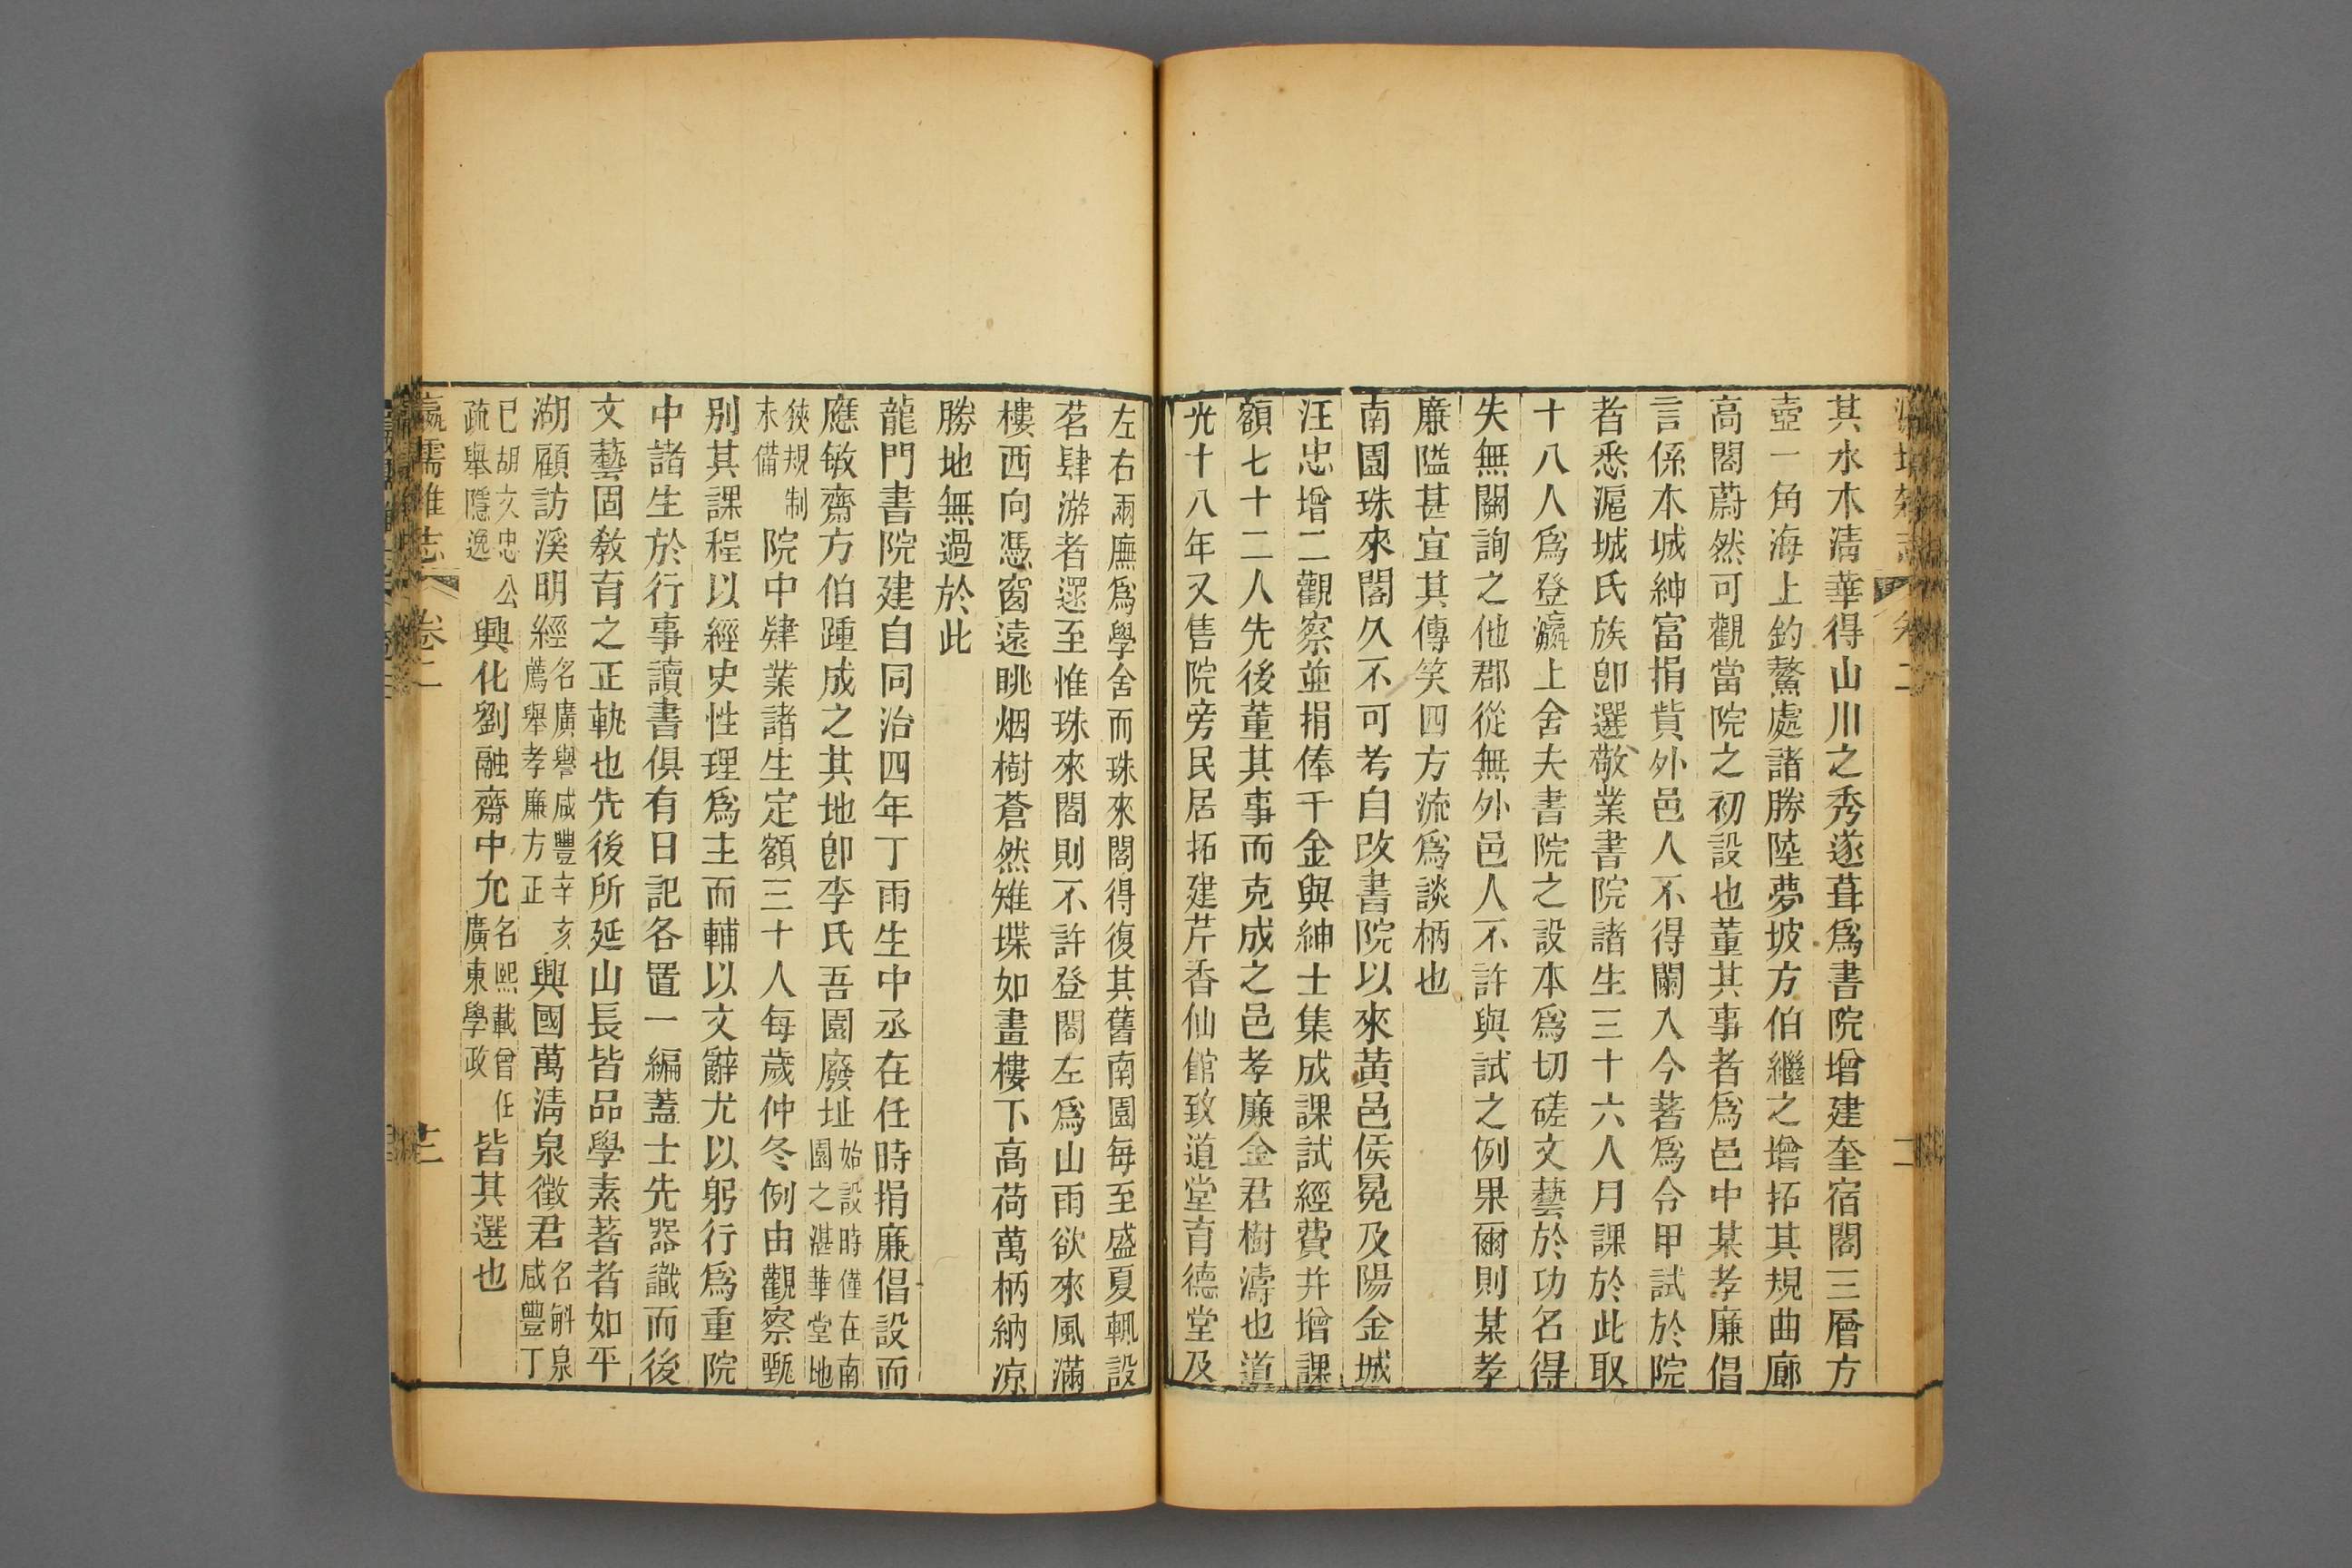 其水木淸華得山川之秀遂葺爲書院增建奎宿閣三層方
壺一角海上釣鰲處諸勝陸夢坡方伯繼之增拓其規曲廊
高閣蔚然可觀當院之初設也董其事者爲邑中某孝廉倡
言係本城紳富捐貲外邑人不得闌入今著爲令甲試於院
者悉滬城氏族卽選敬業書院諸生三十六人月課於此取
十八人爲登瀛上舍夫書院之設本爲切磋文藝於功名得
失無關詢之他郡從無外邑人不許與試之例果爾則某孝
廉隘甚宜其傳笑四方流爲談柄也
南園珠來閣久不可考自改書院以來黃邑侯冕及陽金城
汪忠增二觀察並捐俸千金與紳士集成課試經費幷增課
額七十二人先後董其事而克成之邑孝廉金君樹濤也道
光十八年又售院旁民居拓建芹香仙館致道堂育德堂及
左右兩廡爲學舍而珠來閣得復其舊南園每至盛夏輒設
茗肆游者遝至惟珠來閣則不許登閣左爲山雨欲來風滿
樓西向憑窗遠眺烟樹蒼然雉堞如畫樓下高荷萬柄納凉
勝地無過於此
龍門書院建自同治四年丁雨生中丞在任時捐廉倡設而
應敏齋方伯踵成之其地卽李氏吾園廢址始設時僅在南園之湛華堂地
狹規制未備院中肄業諸生定額三十人每歲仲冬例由觀察甄
別其課程以經史性理爲主而輔以文辭尤以躬行爲重院
中諸生於行事讀書俱有日記各置一編蓋士先器識而後
文藝固敎育之正軌也先後所延山長皆品學素著者如平
湖顧訪溪明經名廣譽咸豐辛亥薦舉孝廉方正興國萬淸泉徵君名斛泉咸豐丁
已胡文忠公疏舉隱逸興化劉融齋中允名熙載曾任廣東學政皆其選也
瀛壖雜志
卷二